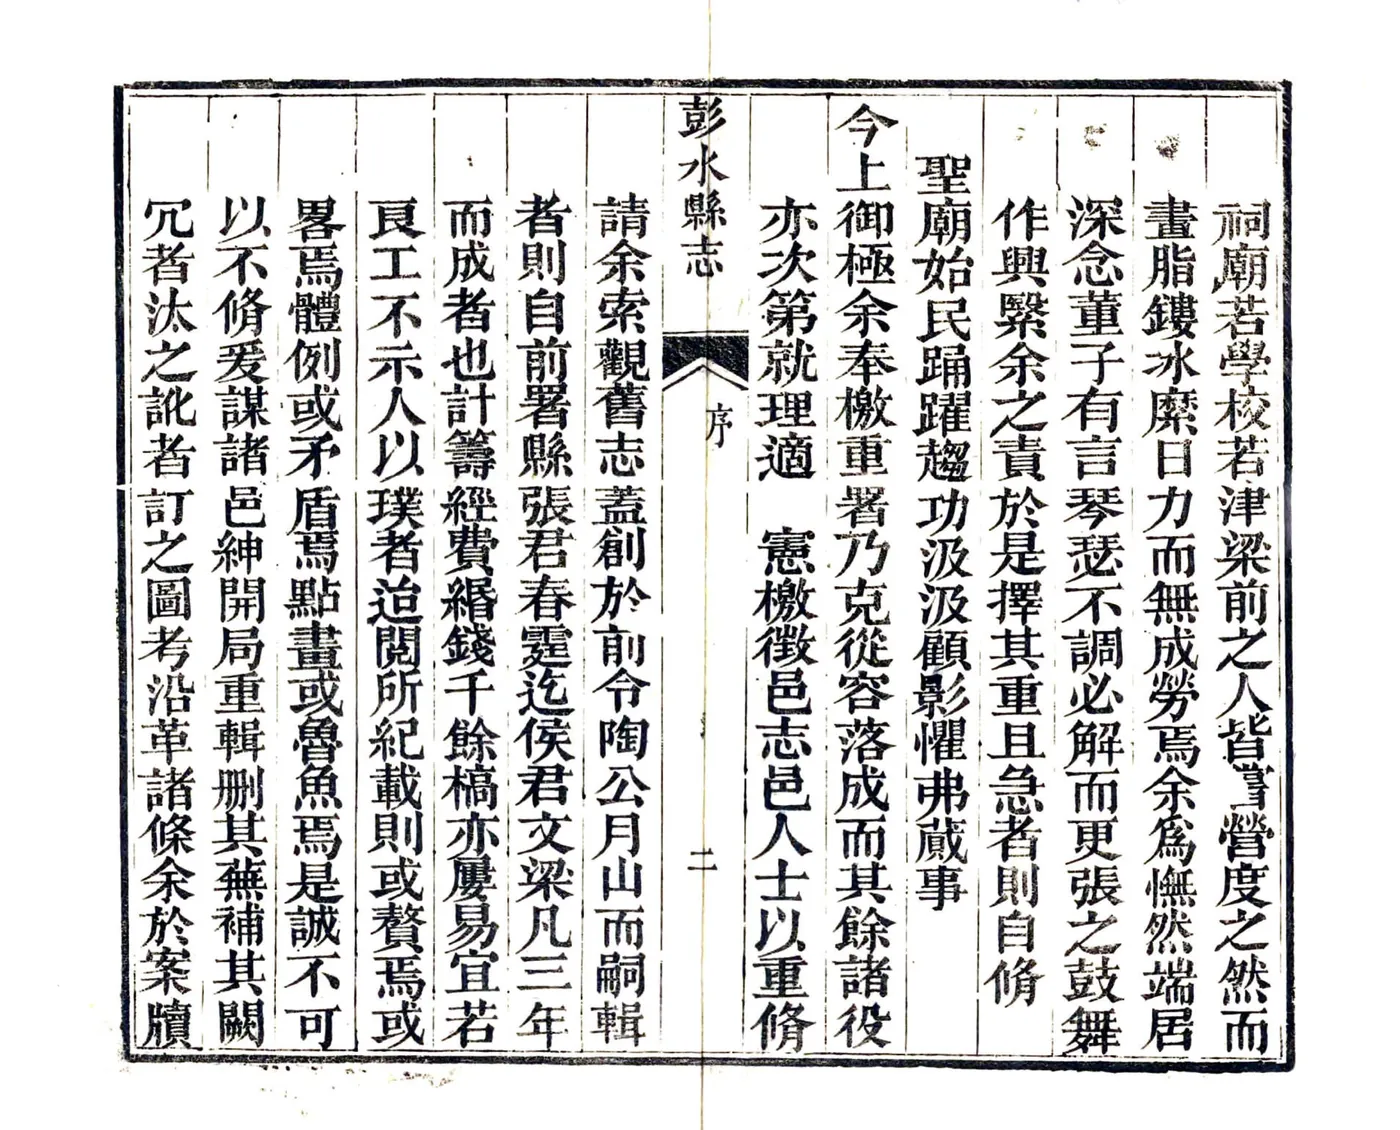 祠廟若學校若津梁前之人皆嘗營度之然而
畫脂鏤冰糜日力而無成勞焉余爲憮然端居
深念董子有言琴瑟不調必解而更張之鼓舞
作興繄余之責於是擇其重且急者則自脩
聖廟始民踊躍趨功汲汲顧影懼弗蕆事
今上御極余奉檄重署乃克從容落成而其餘諸役
亦次第就理適 憲檄徵邑志邑人士以重脩
彭水縣志 序 二
請余索觀舊志蓋創於前令陶公月山而嗣輯
者則自前署縣張君春霆迄侯君文梁凡三年
而成者也計籌經費緡錢千餘槁亦屢易宜若
良工不示人以璞者迨閱所紀載則或贅焉或
畧焉體例或矛盾焉點畫或魯魚焉是誠不可
以不脩爰謀諸邑紳開局重輯刪其蕪補其闕
冗者汰之訛者訂之圖考沿革諸條余於案牘